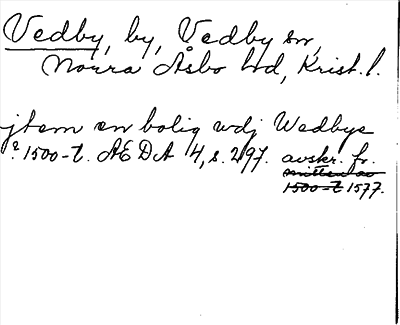 Vedby, by, Vedby sn,
Norra Åsbo hd, Krist. l.
jtem en bolig wdj Wedbye
? 1500-t. ÆDA 4, s. 297. avskr. fr.
mitten av
1500-t 1577.